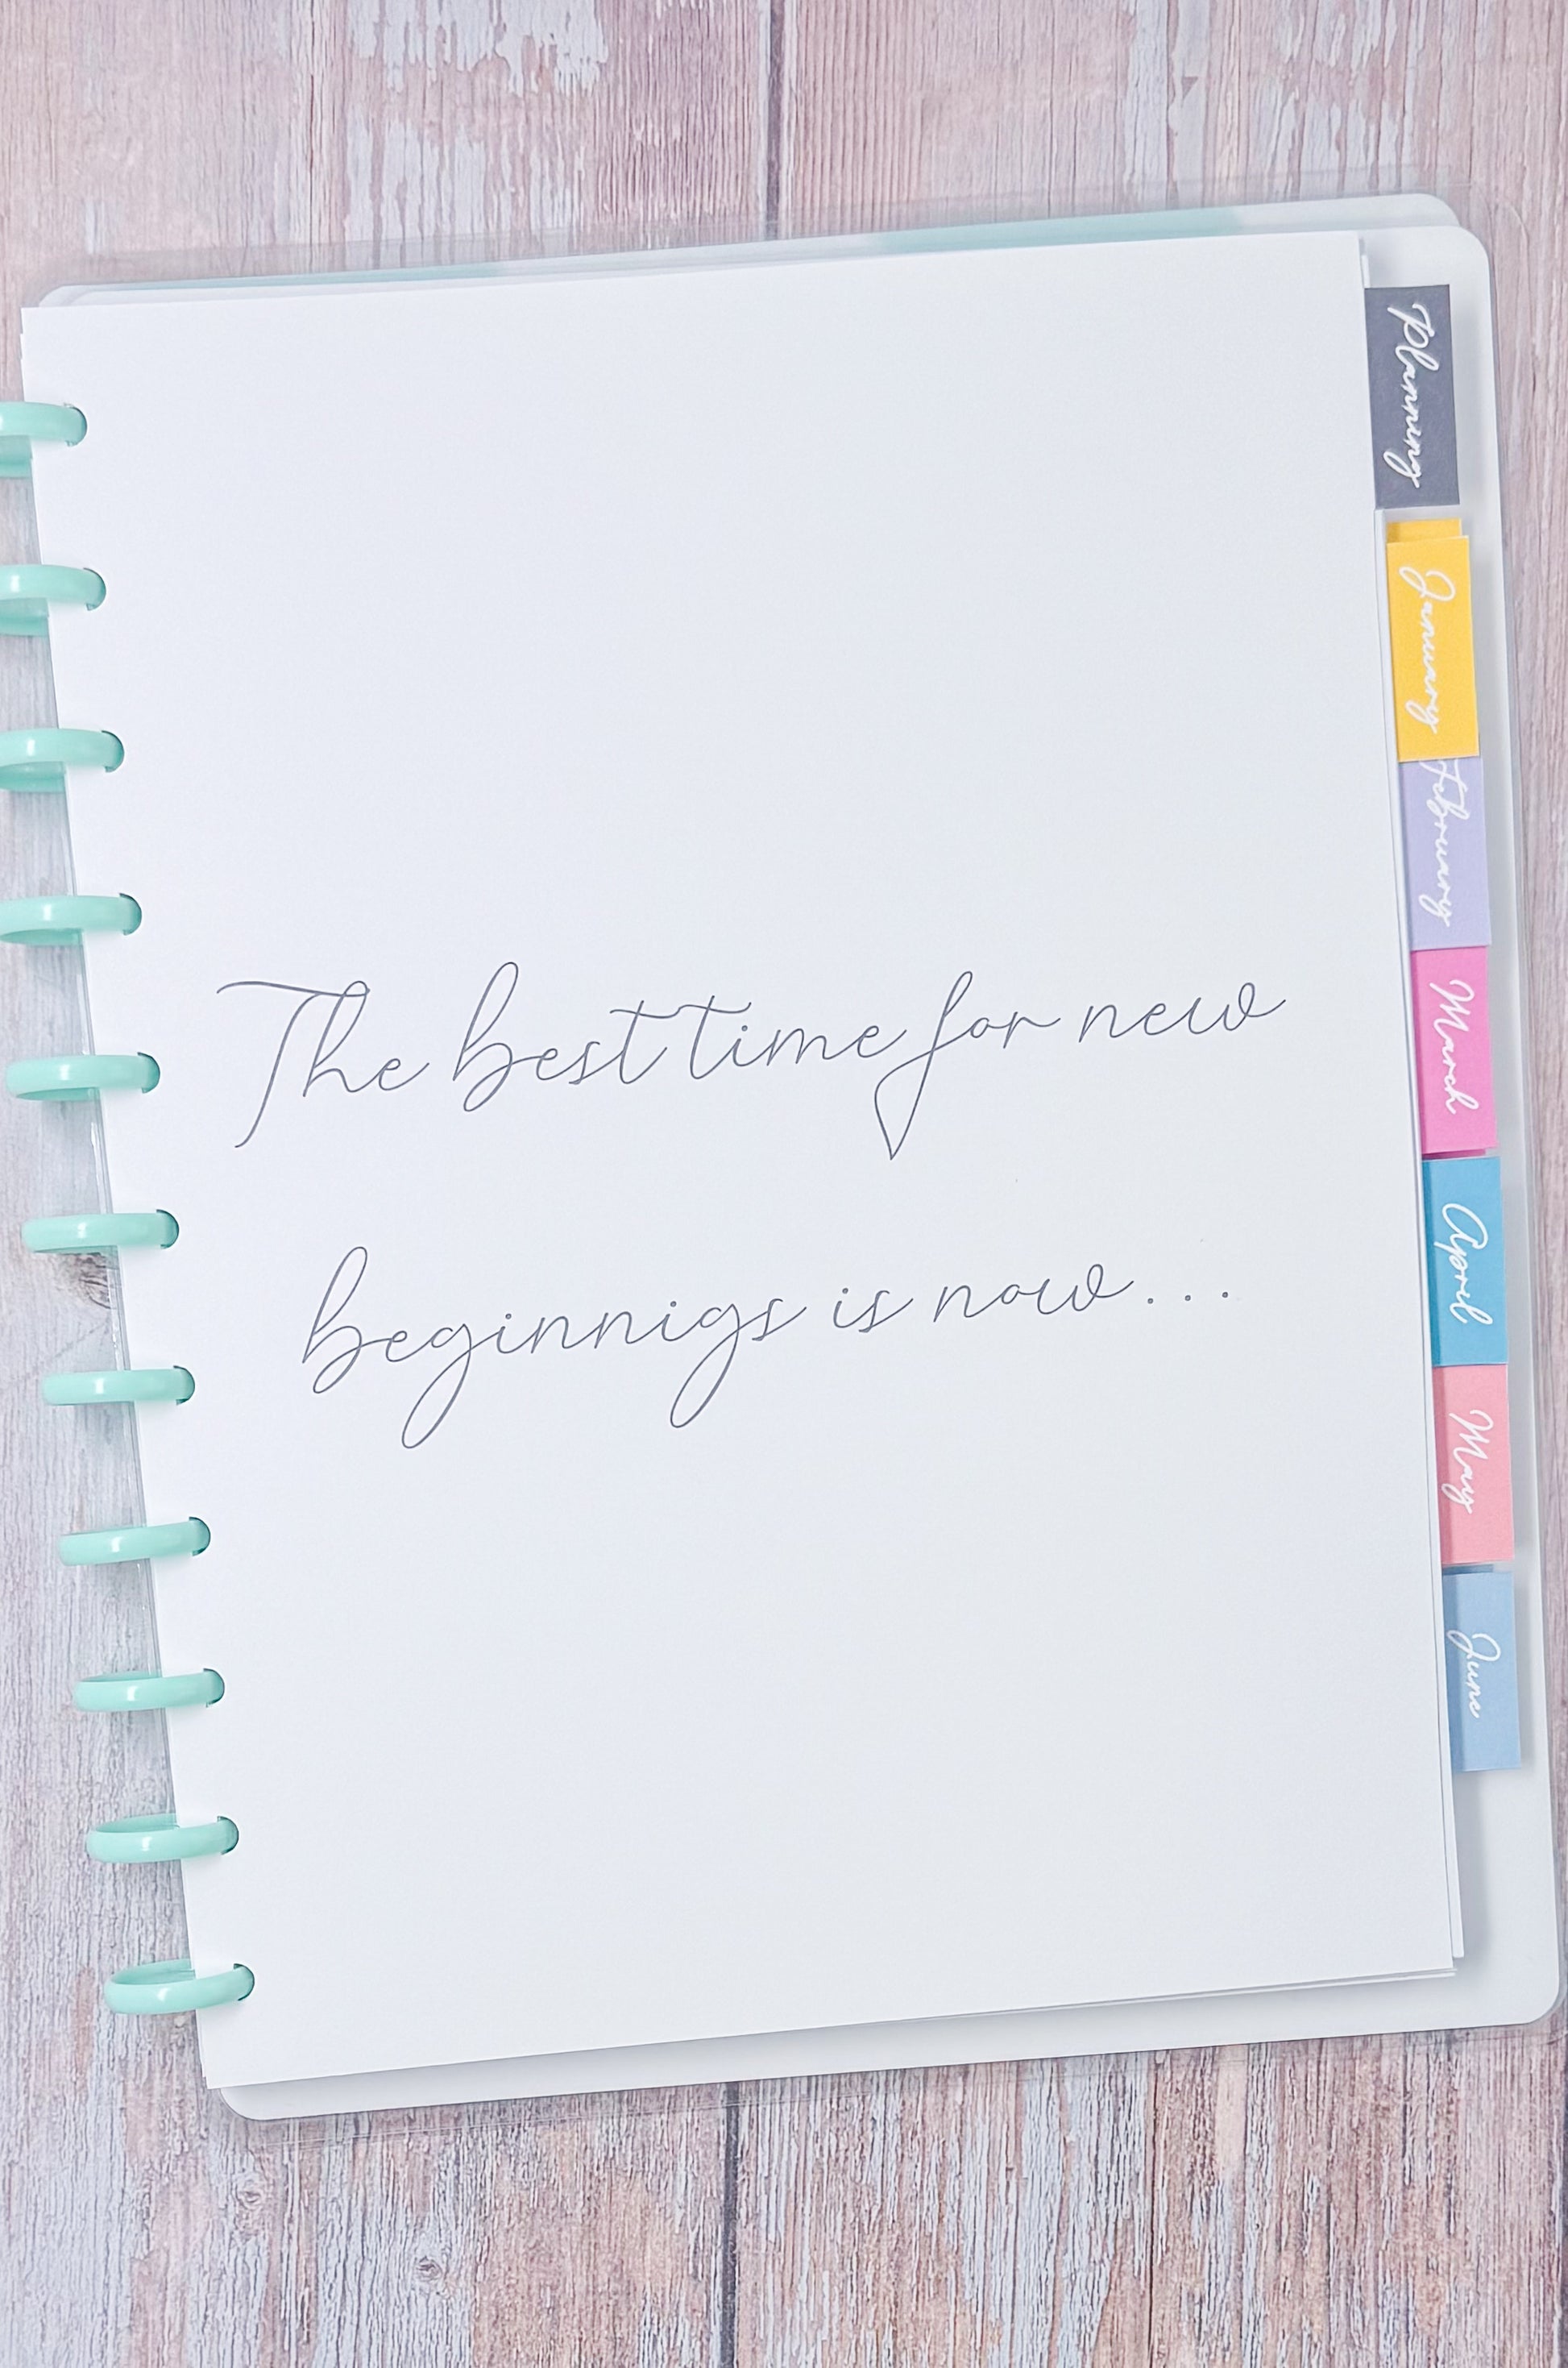 The best time for new
beginnigs is now...
Planning
January
February
March
April
May
June